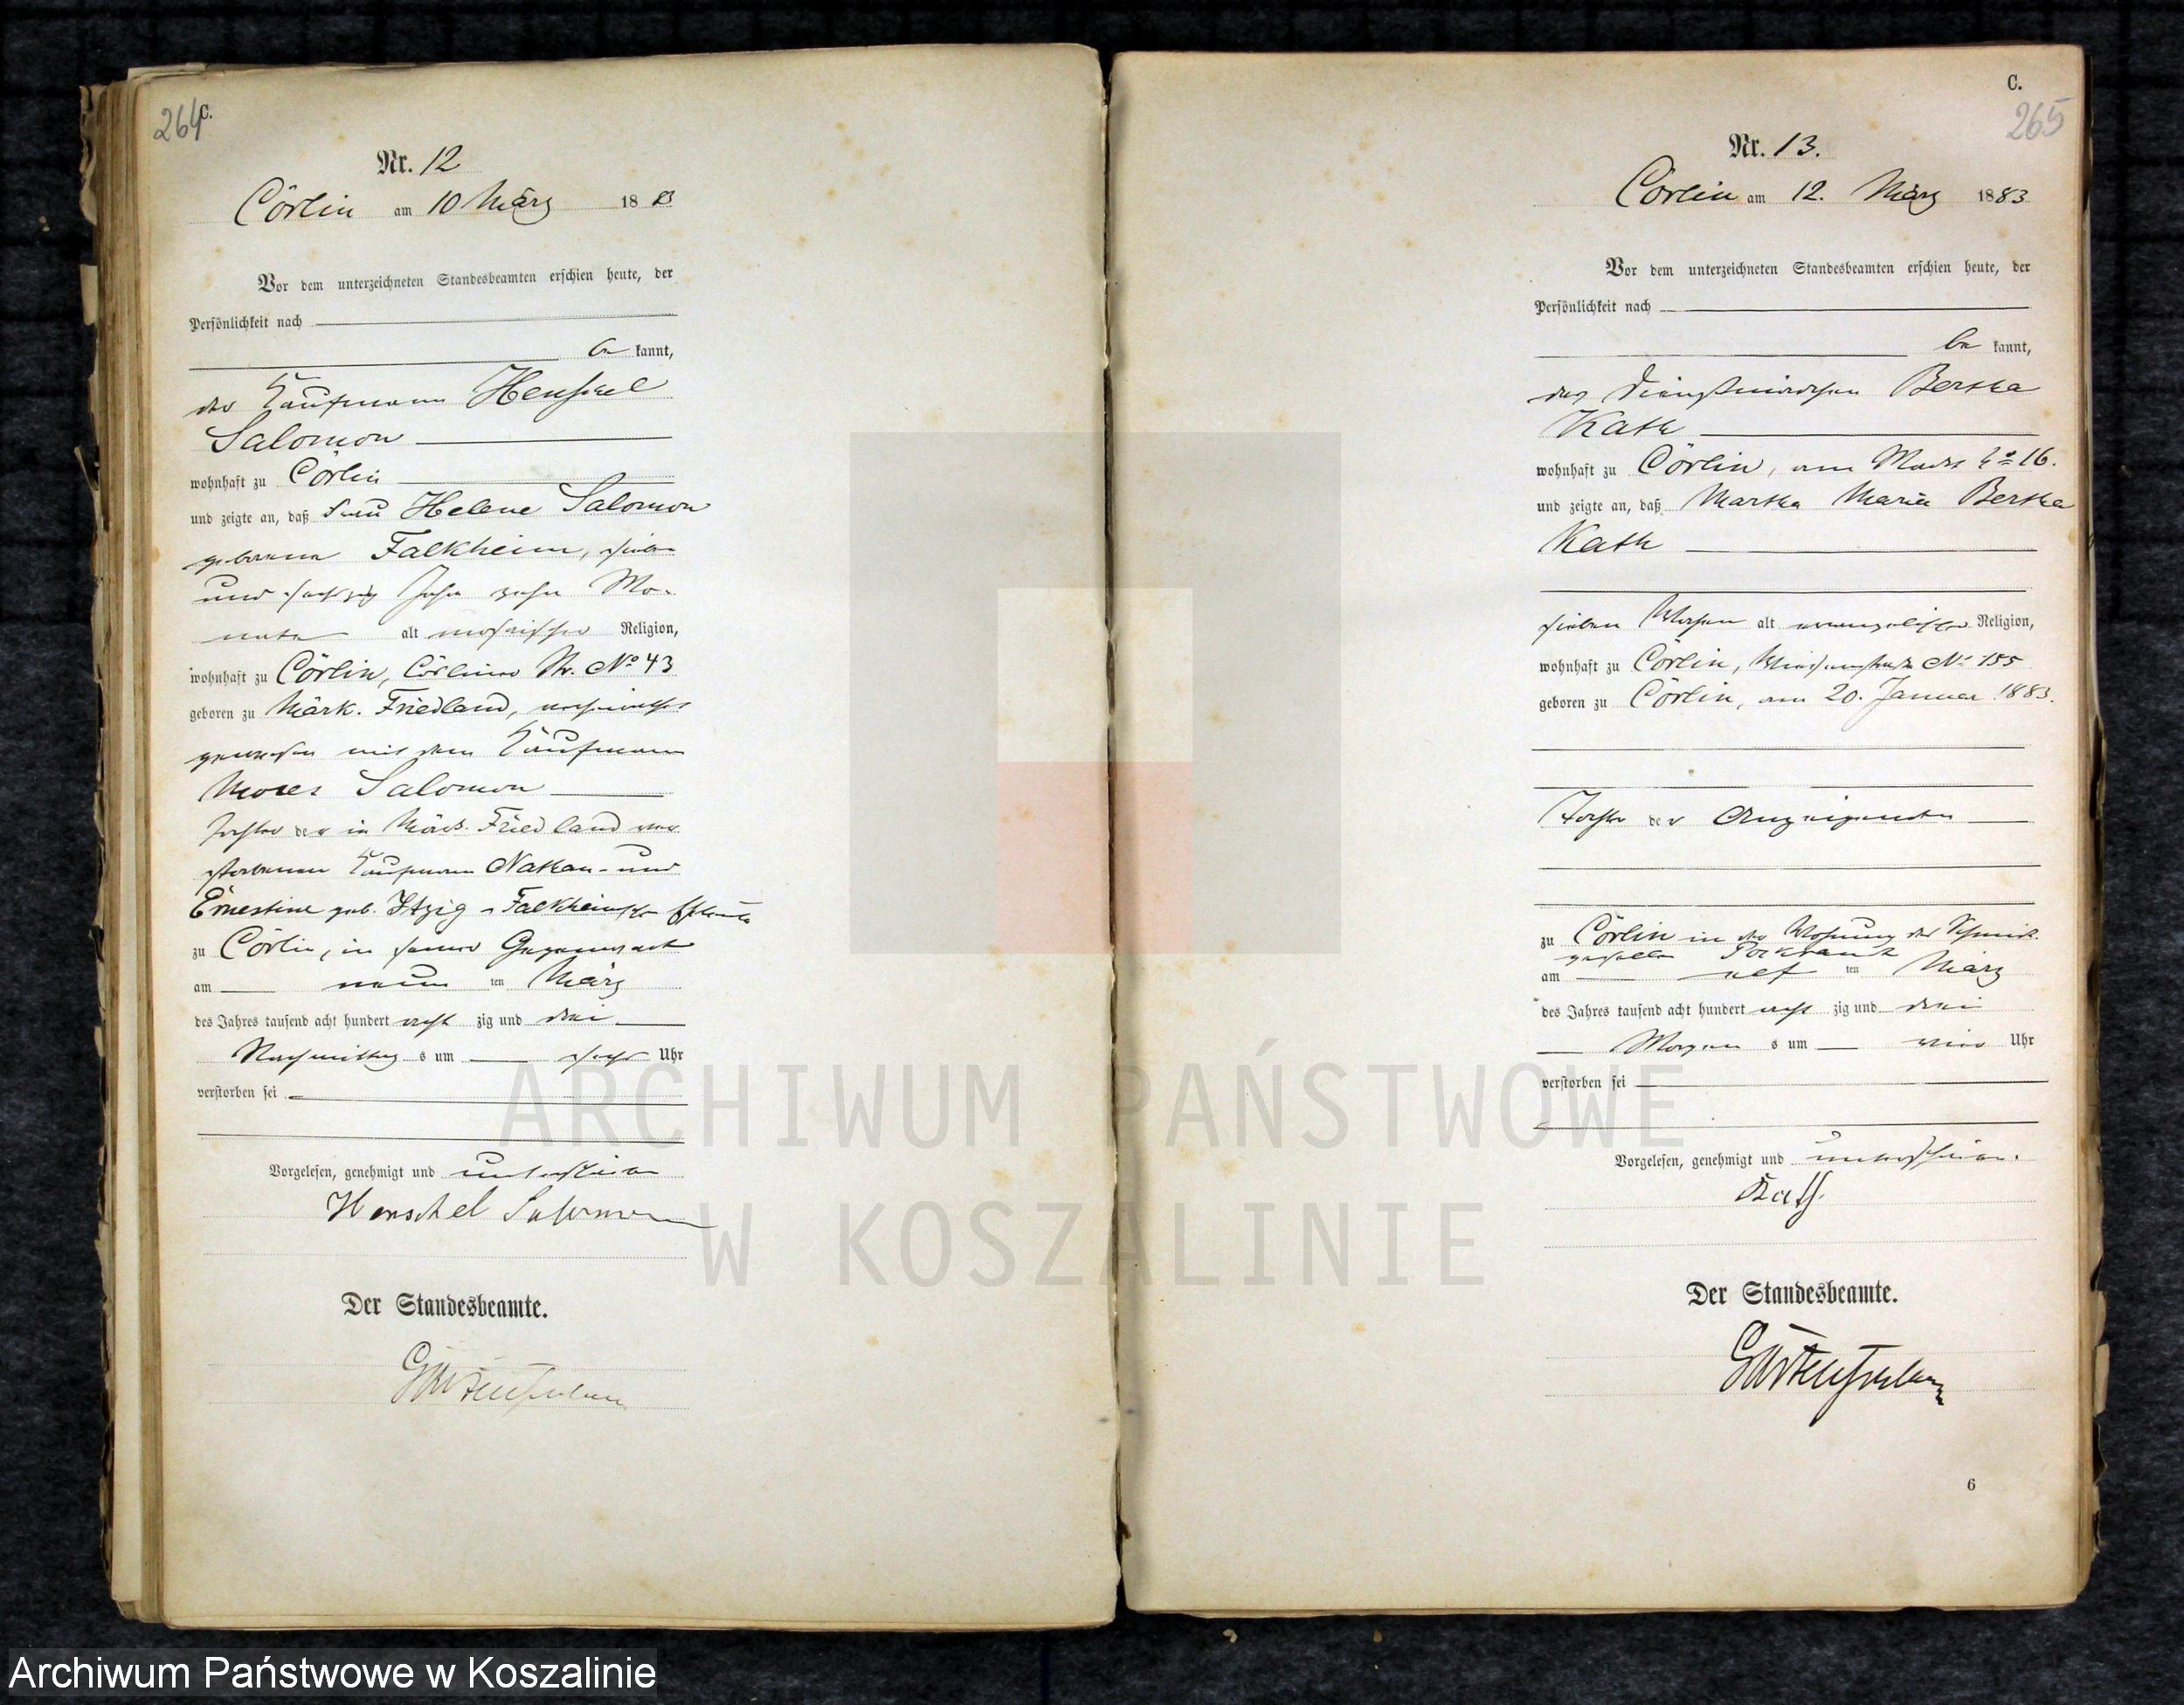 264
C.
Nr. 12
Cörlin am 10 März 1883
Vor dem unterzeichneten Standesbeamten erschien heute, der
Persönlichkeit nach
be kannt,
der Kaufmann Henschel
Salomon
wohnhaft zu Cörlin
und zeigte an, daß Frau Helene Salomon
geborene Falkheim, sieben
und sechszig Jahr zehn Mo-
nate alt mosaischer Religion,
wohnhaft zu Cörlin, Cösliner Str. No 43
geboren zu Märk. Friedland, verheirathet
gewesen mit dem Kaufmann
Moses Salomon
Tochter der in Märk. Friedland ver
storbenen Kaufmann Nathan- und
Ernestine geb. Itzig - Falkheim'schen Eheleute
zu Cörlin, in seiner Gegenwart
am neun ten März
des Jahres tausend acht hundert acht zig und drei
Nachmittag s um sechs Uhr
verstorben sei
Vorgelesen, genehmigt und unterschrieben
Henschel Salomon
Der Standesbeamte.
C.
265
Nr. 13.
Cörlin am 12. März 1883
Vor dem unterzeichneten Standesbeamten erschien heute, der
Persönlichkeit nach
be kannt,
das Dienstmädchen Bertha
Kath
wohnhaft zu Cörlin, am Markt No 16.
und zeigte an, daß Martha Maria Bertha
Kath
sieben Wochen alt evangelischer Religion,
wohnhaft zu Cörlin, No 155
geboren zu Cörlin, am 20. Januar 1883.
Tochter der Anzeigenden
zu Cörlin in der Wohnung des Schmiede-
gesellen
am elf ten März
des Jahres tausend acht hundert acht zig und drei
Morgen s um vier Uhr
verstorben sei
Vorgelesen, genehmigt und unterschrieben.
Kath.
Der Standesbeamte.
6
ARCHIWUM PAŃSTWOWE
W KOSZALINIE
Archiwum Państwowe w Koszalinie